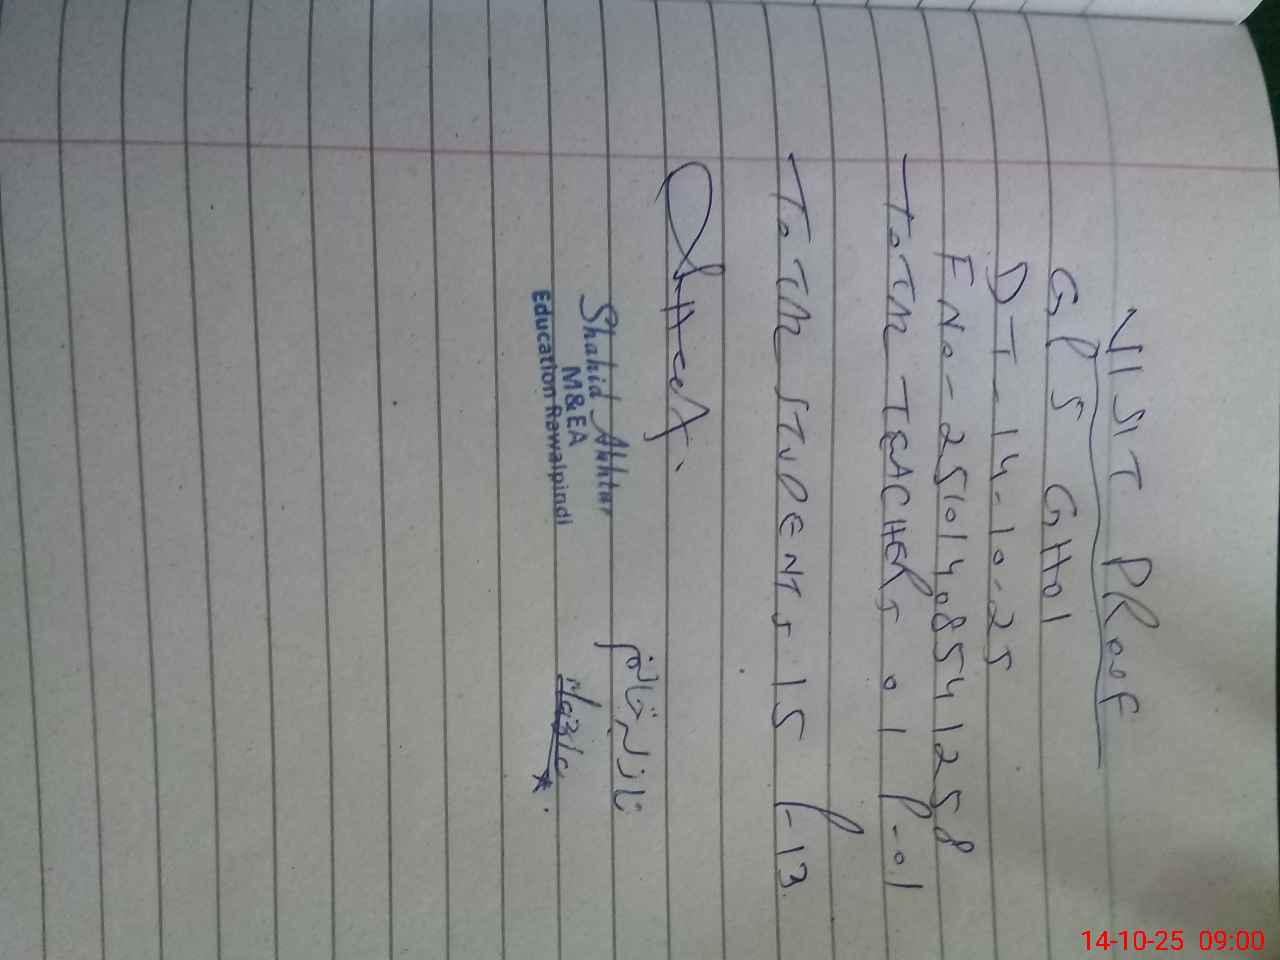 VISIT PROOF
GPS GHOI
DT-14-10-25
FNo-251014085541258
TOTAL TEACHERS 01 P-01
TOTAL STUDENTS 15 P-13
Shahid Akhtar
M&EA
Education Rawalpindi
Nazia
14-10-25 09:00